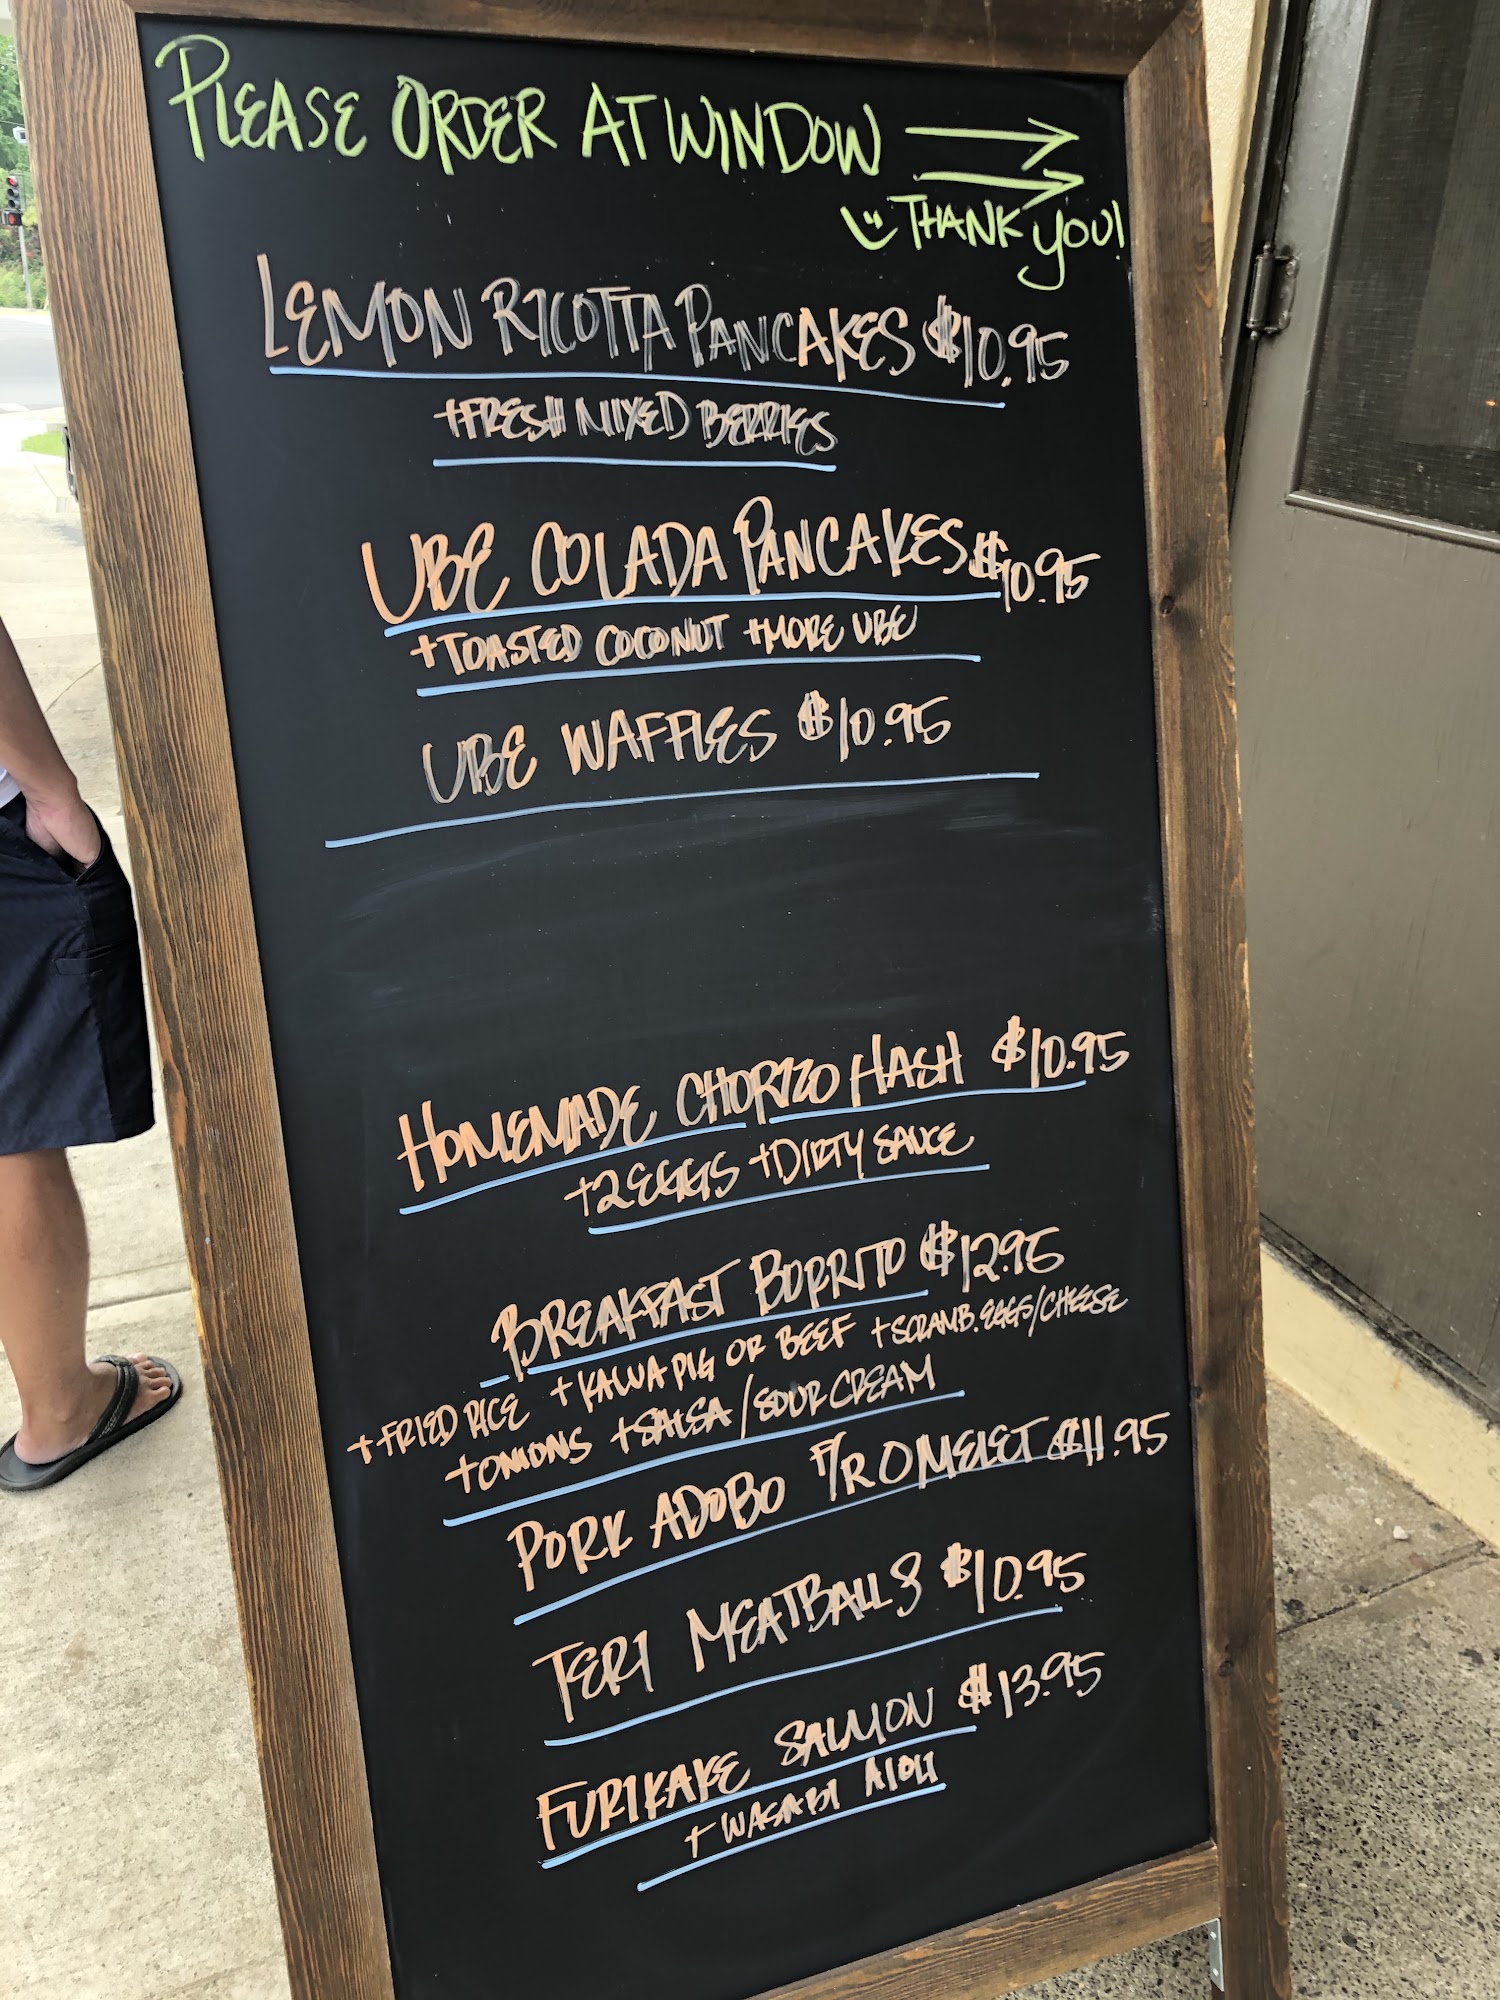 PLEASE ORDER AT WINDOW
THANK YOU!
LEMON RICOTTA PANCAKES $10.95
+FRESH MIXED BERRIES
UBE COLADA PANCAKES $10.95
+TOASTED COCONUT +MORE UBE
UBE WAFFLES $10.95
HOMEMADE CHORIZO HASH $10.95
+2 EGGS +DIRTY SAUCE
BREAKFAST BURRITO $12.95
+FRIED RICE +KALUA PIG OR BEEF +SCRAMB. EGGS/CHEESE
+ONIONS +SALSA/SOUR CREAM
PORK ADOBO F/R OMELET $11.95
TERI MEATBALLS $10.95
FURIKAKE SALMON $13.95
+ WASABI AIOLI